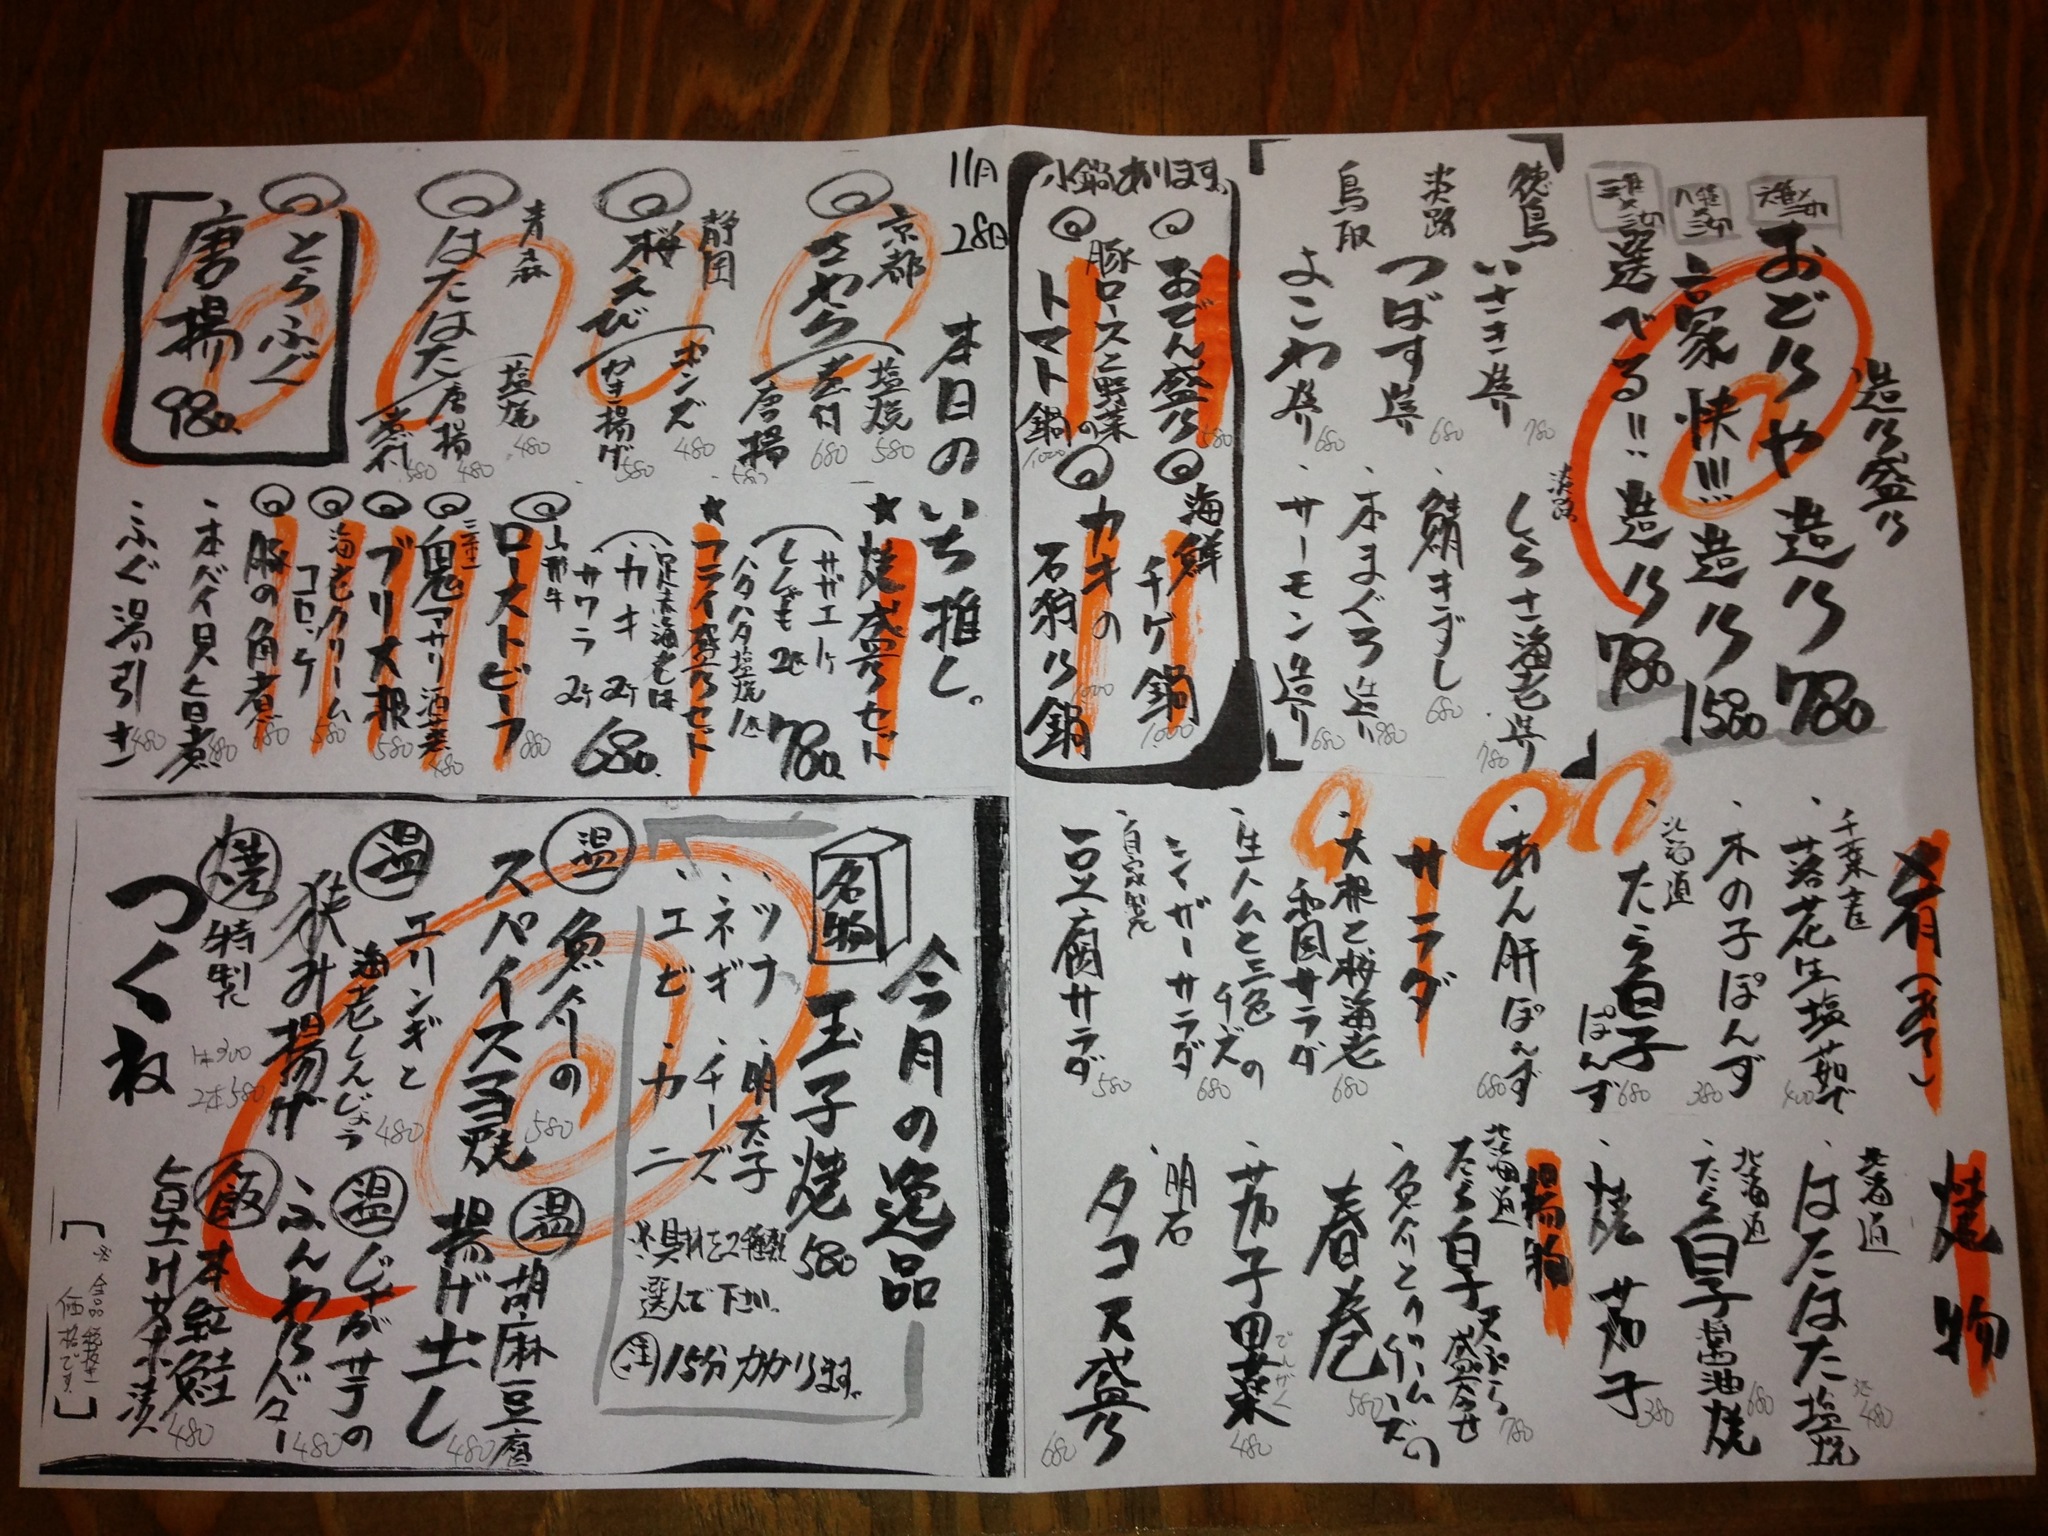 造り盛り
六種×二切
おどりや造り 780
八種×三切
言家快!!!造り 1580
三種×三切
選べる!!造り 780
徳島
いさき造り 780
淡路
つばす造り 680
鳥取
よこわ造り 680
淡路
しらさ海老造り 780
鯖きずし 680
本まぐろ造り 980
サーモン造り 680
小鍋あります。
おでん盛り 580
豚ロースと野菜の
トマト鍋 1,000
海鮮
チゲ鍋 1,000
カキの
石狩り鍋 1,000
肴(あて)
千葉産
落花生塩茹で 400
木の子ぽんず 380
北海道
たら白子
ぽんず 680
あん肝ぽんず 680
サラダ
大根と桜海老
和風サラダ 680
生ハムと三色
チーズの
シーザーサラダ 680
自家製
豆腐サラダ 580
焼物
北海道
はたはた塩焼 480
北海道
たら白子醤油焼 680
焼茄子 380
揚物
北海道
たら白子天ぷら
盛合せ 780
魚介とクリームチーズの
春巻 580
茄子田楽 480
でんがく
明石
タコス盛り 680
11月
28日
本日のいち推し。
京都
さわら
塩焼 580
煮付 680
唐揚 580
静岡
桜えび
ポンズ 480
かき揚げ 580
青森
はたはた
塩焼 480
唐揚 480
煮付 580
とらふぐ
唐揚 980
★焼盛りセット
サザエ1ケ
ししゃも2匹
ハタハタ塩焼1匹
780
★フライ盛りセット
足赤海老1本
カキ2ケ
サワラ2ケ
680
山形牛
ローストビーフ 880
三重
鬼アサリ酒蒸 480
ブリ大根 580
海老クリーム
コロッケ 580
豚の角煮 680
本バイ貝旨煮 480
ふぐ湯引き 480
今月の逸品
名物
玉子焼 580
ツナ 明太子
ネギ チーズ
エビ カニ
※具材を2種類
選んで下さい。
注 15分かかります。
温
魚介の
スパイスマヨ焼 580
温
胡麻豆腐
揚げ出し 480
温
エリンギと
海老しんじょう
挟み揚げ 480
温
じゃが芋の
ふんわりバター 480
焼
特製
つくね
1本300
2本580
飯
本紅鮭
皇け茶漬 480
※全品税抜き
価格です。